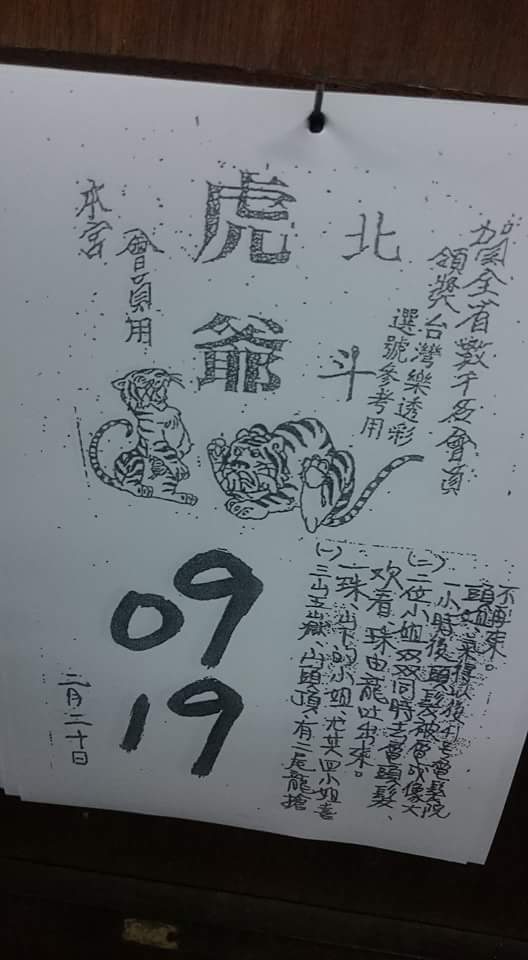 賀全省數千名會員
領獎台灣樂透彩
選號參考用
北斗
虎爺
會員用
本宮
09
19
二月二十日
(一)三山五嶽、山頭頂、有二尾龍搶
一珠、山下的小姐、尤其四小姐喜
欢看珠由龍吐出來。
(二)二位小姐双双同時去電頭髮、
一小時後頭髮被電吹像大
不再來。